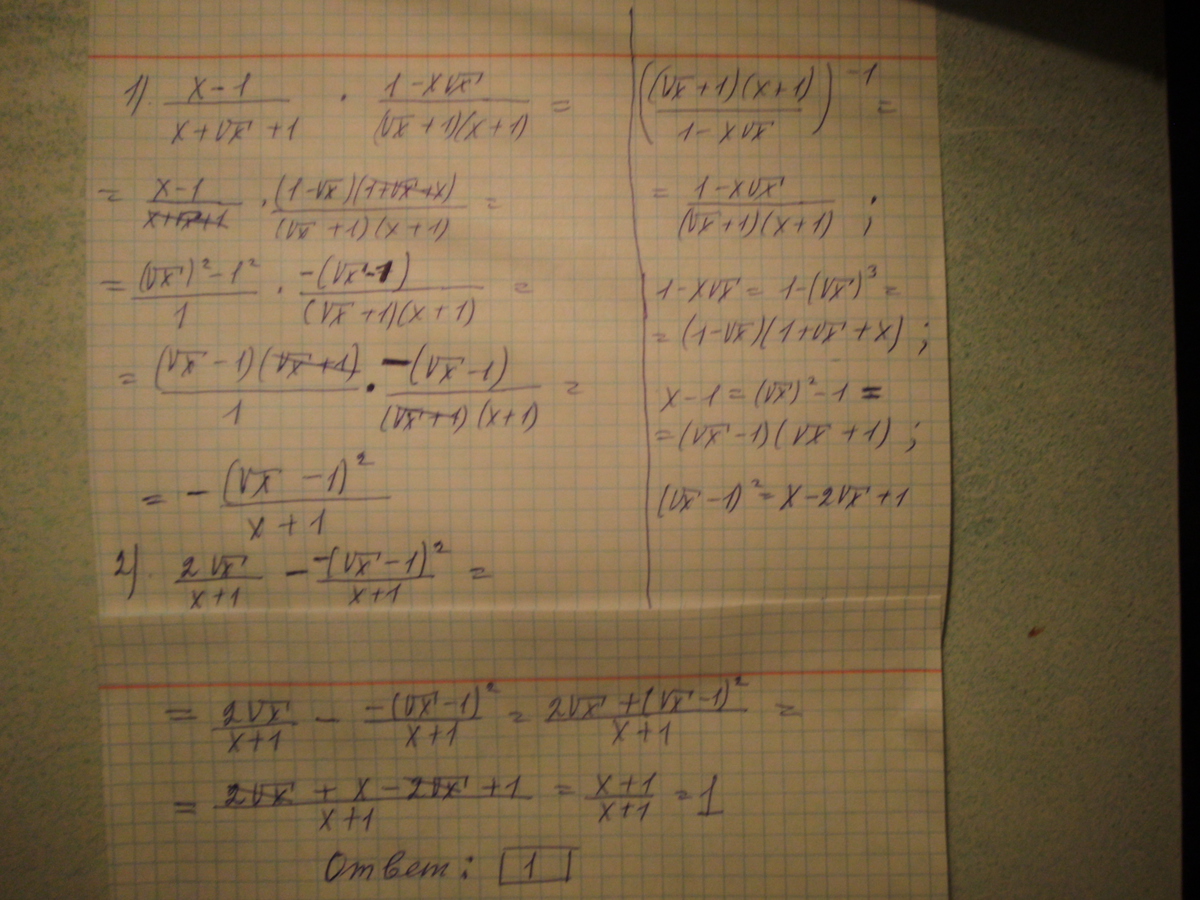 1). (x-1)/(x+√x+1) · (1-x√x)/((√x+1)(x+1)) =
= (x-1)/(x+√x+1) · ((1-√x)(1+√x+x))/((√x+1)(x+1)) =
= ((√x)²-1²)/1 · (-(√x-1))/((√x+1)(x+1)) =
= ((√x-1)(√x+1))/1 · (-(√x-1))/((√x+1)(x+1)) =
= - (√x-1)²/(x+1)
(((√x+1)(x+1))/(1-x√x))⁻¹ =
= (1-x√x)/((√x+1)(x+1)) ;
1-x√x = 1-(√x)³ =
= (1-√x)(1+√x+x) ;
x-1 = (√x)²-1 =
= (√x-1)(√x+1) ;
(√x-1)² = x-2√x+1
2). 2√x/(x+1) - (-(√x-1)²)/(x+1) =
= 2√x/(x+1) - (-(√x-1)²)/(x+1) = (2√x+(√x-1)²)/(x+1) =
= (2√x+x-2√x+1)/(x+1) = (x+1)/(x+1) = 1
Ответ: 1